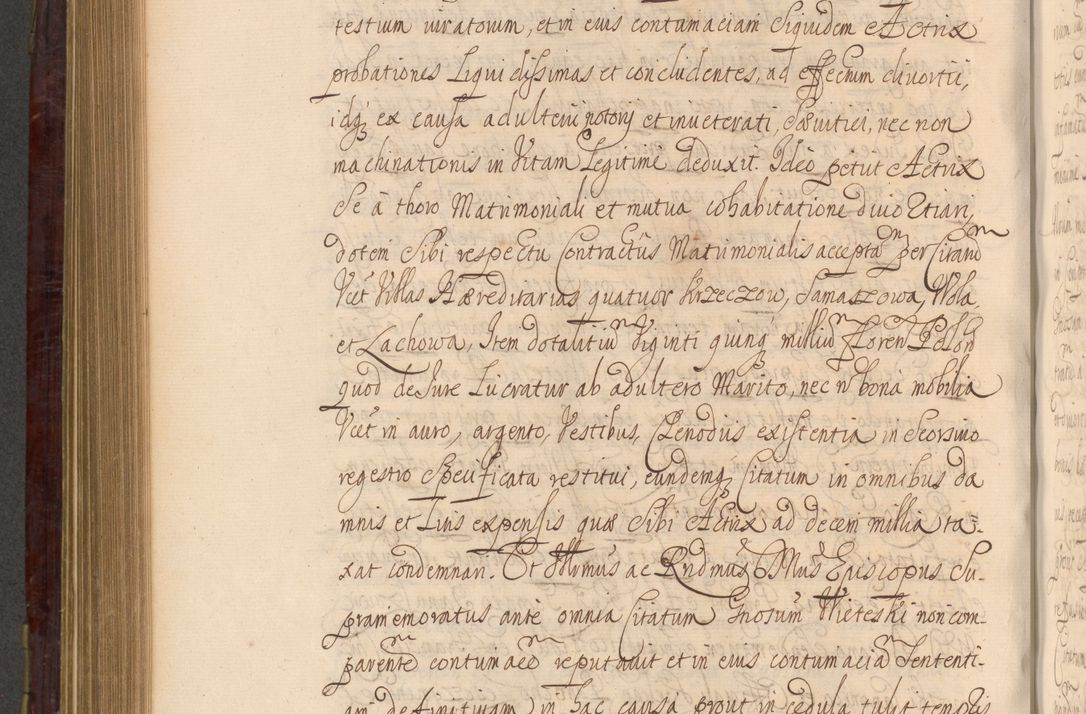 testium iuratorum, et in eius contumaciam Siquidem Actrix
probationes Liquidissimas et concludentes, ad effectum divortii,
idq₃ ex causa adulterii notorij et inveterati, Sævitiei, nec non
machinationis in Vitam Legitimè deduxit. Ideo petiit Actrix
Se à thoro Matrimoniali et mutua cohabitatione divid Etiam,
dotem Sibi respectu Contractus Matrimonialis accepta per Citand
Vcet Villas Hæreditarias quatuor Krzeczow, Samaszowa, Wola,
et Lachowa, Item dotalitiu Viginti quinq₃ milliu Floren Polon
quod de Jure Lucratur ab adultero Marito, nec n bona mobilia
Vcet in auro, argento, Vestibus, Clenodiis existentia in Seorsivo
regestro Specificata restitui, eundemq₃ Citatum in omnibus da
mnis et Litis expensis quas Sibi Actrix ad decem millia ta-
xat condemnari. Et Illrmus ac Rndmus Dnus Episcopus Su-
pramemoratus ante omnia Citatum Gnosum Wieteski non com-
parente contumace reputavit et in eius contumacia Sententi-
am definitivam in hac causa prout in cedula tulit tenoris